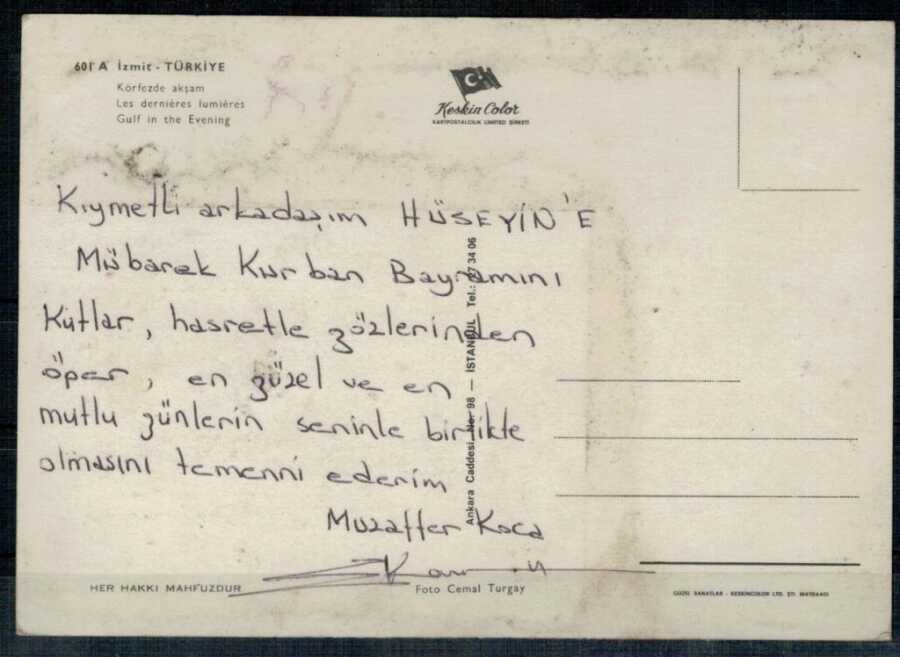 601 A İzmit - TÜRKİYE
Körfezde akşam
Les derniéres lumiéres
Gulf in the Evening
Keskin Color
KARTPOSTALCILIK LIMITED ŞİRKETİ
Kıymetli arkadaşım HÜSEYİN'E
Mübarek Kurban Bayramını
Kutlar, hasretle gözlerinden
öper, en güzel ve en
mutlu günlerin seninle birlikte
olmasını temenni ederim
Muzaffer Koca
Ankara Caddesi No. 98 — İSTANBUL Tel.: 27 34 06
HER HAKKI MAHFUZDUR
Foto Cemal Turgay
GÜZEL SANATLAR - KESKİNCOLOR LTD. ŞTİ. MATBAASI